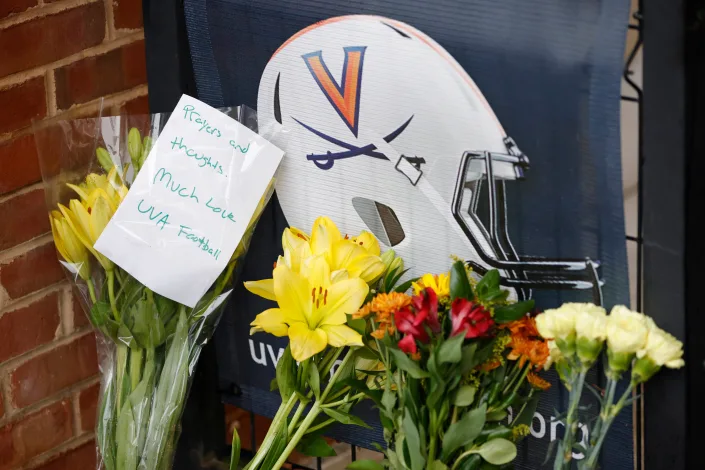 Prayers and
thoughts.
Much Love
UVA Football
V
uv
org